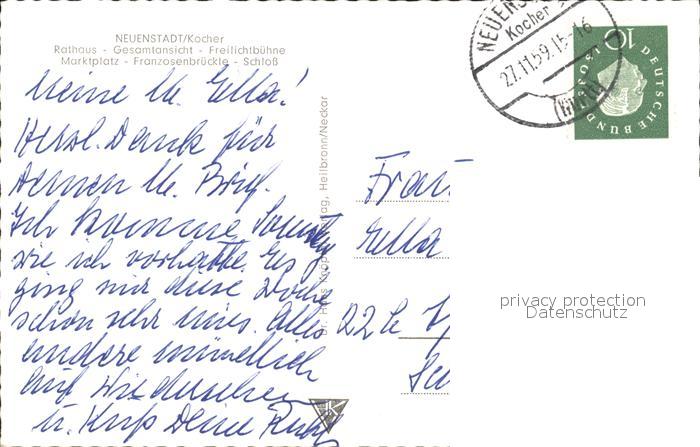 NEUENSTADT/Kocher
Rathaus - Gesamtansicht - Freilichtbühne
Marktplatz - Franzosenbrückle - Schloß
Meine lb. Ella!
Herzl. Dank für
deinen lb. Brief.
Ich komme Sonntag
wie ich vorhatte. Es
ging mir diese Woche
schon sehr mies. Alles
andere mündlich
Auf Wiedersehen
u. Kuß Deine
Frau
Ella
22 b
Heilbronn/Neckar
NEUEN
Kocher
27.11.59.15-16
(Württ)
10
DEUTSCHE BUNDESPOST
privacy protection
Datenschutz